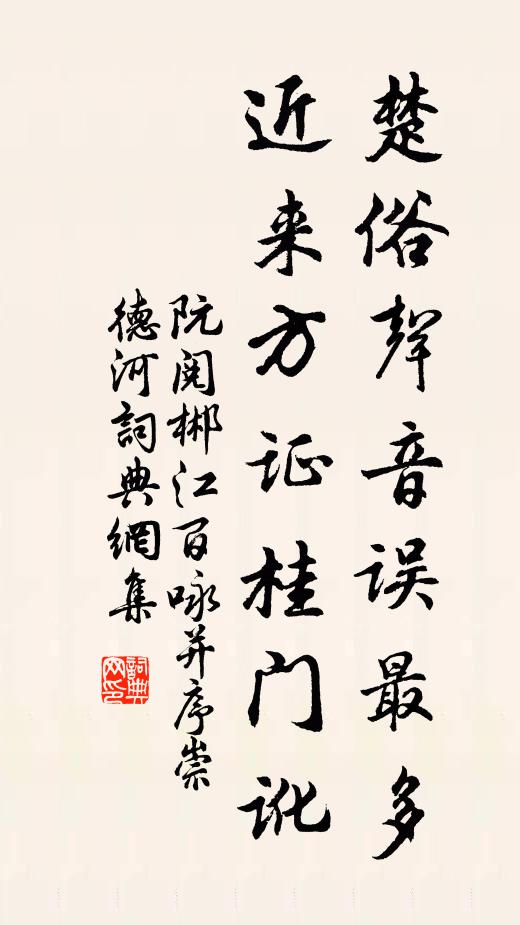 楚俗聲音误最多
近来方证桂门讹
阮阅郴江百咏并序崇
德河詞典網集
詞典
网印